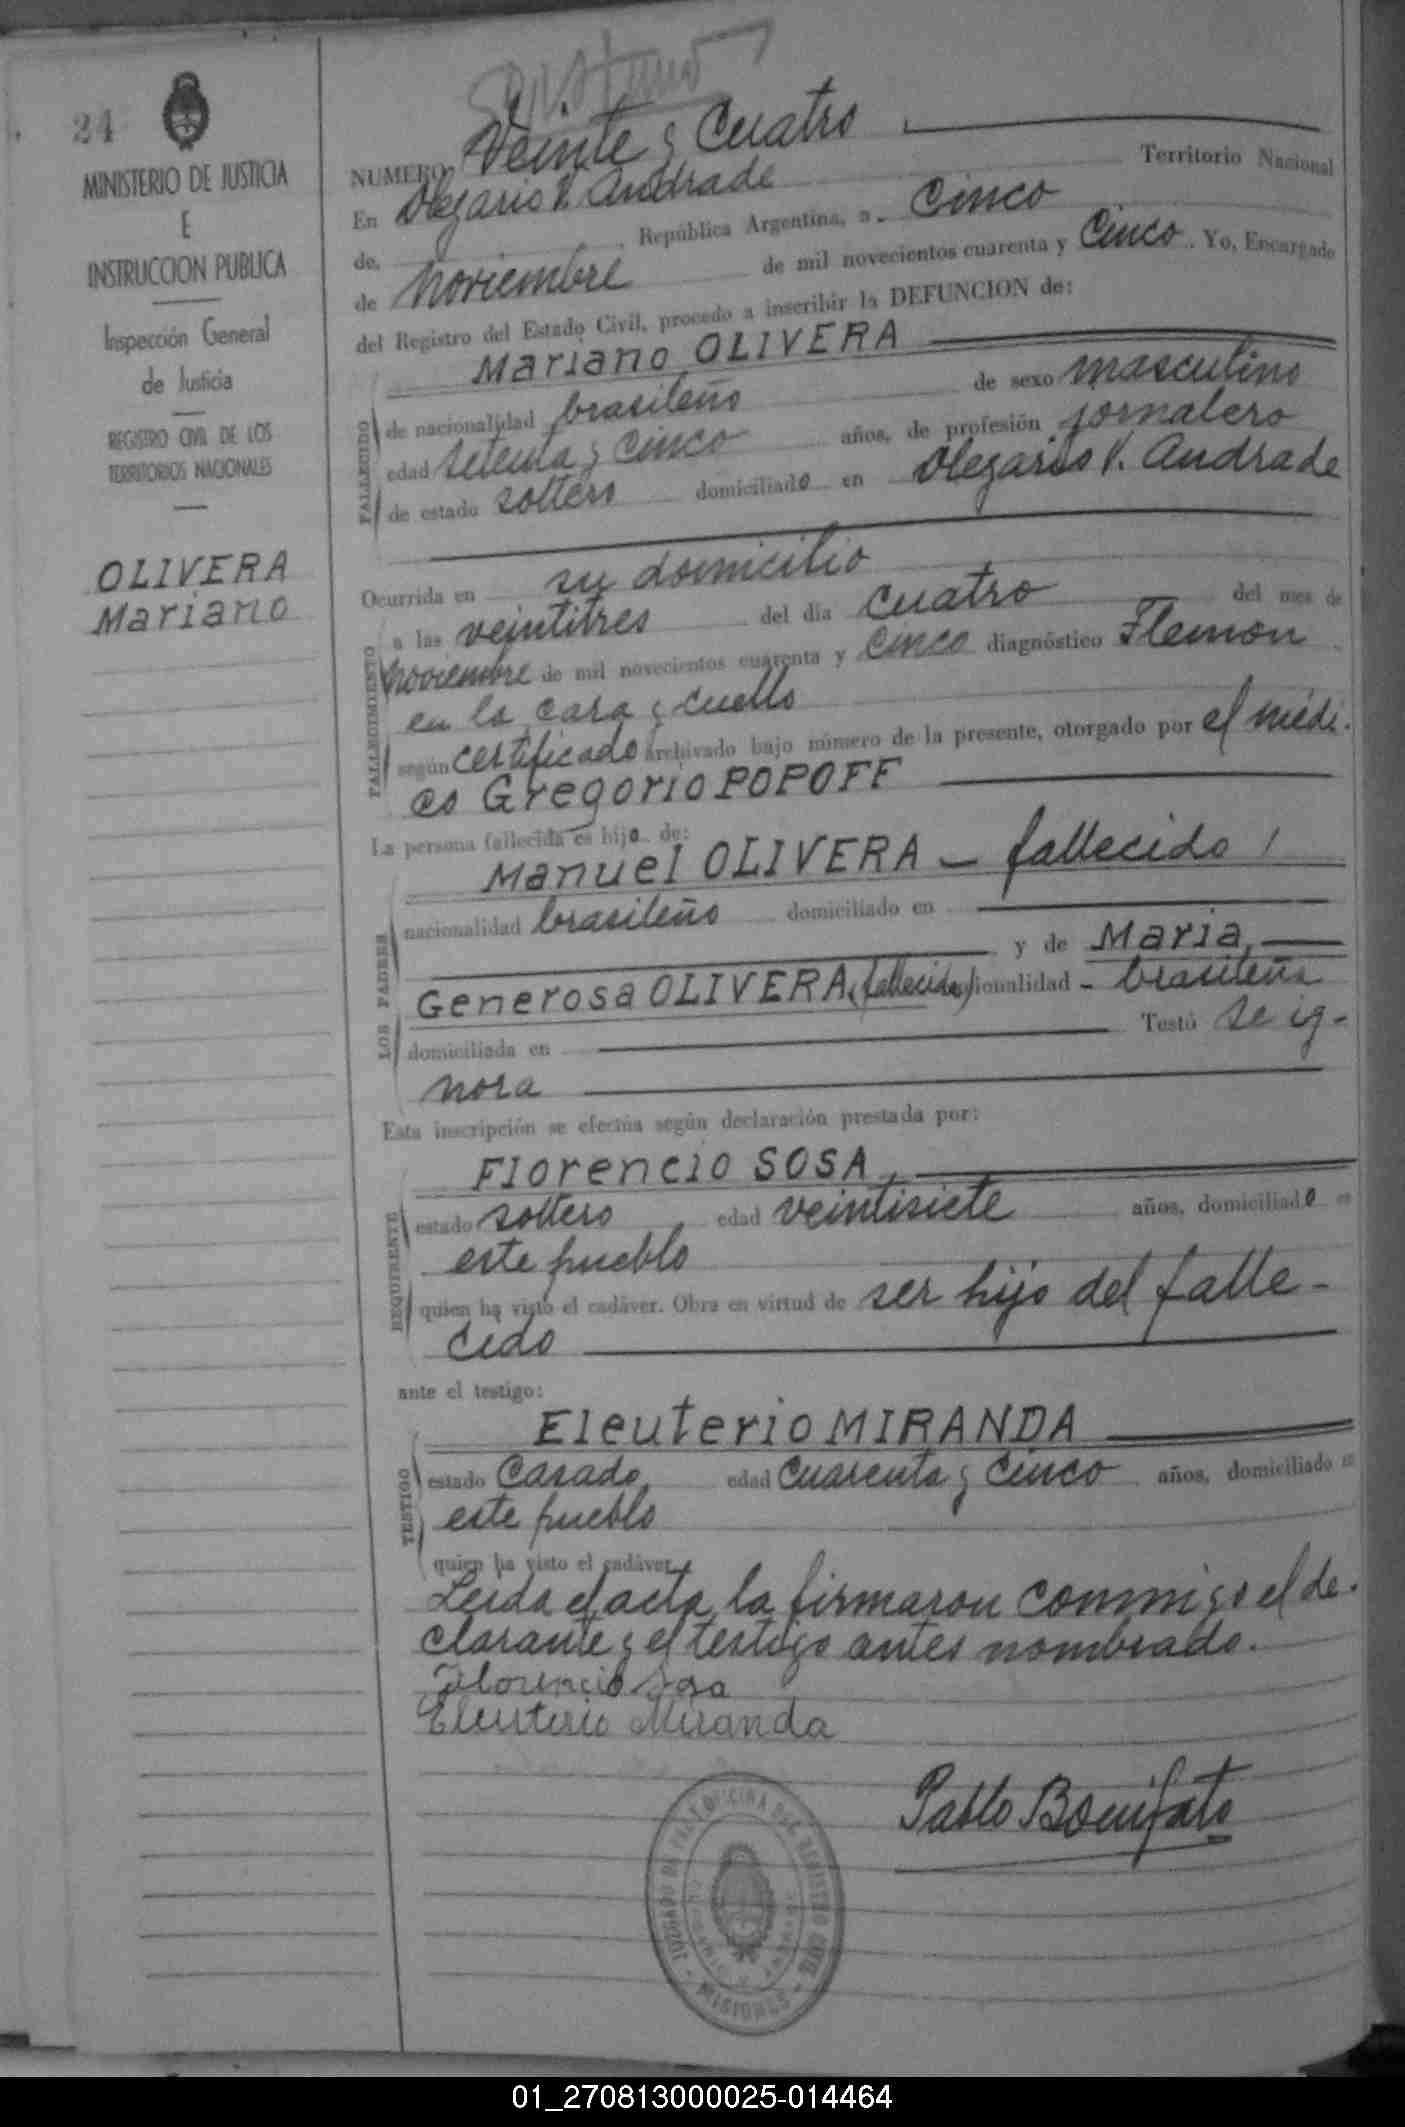 24
MINISTERIO DE JUSTICIA
E
INSTRUCCION PUBLICA
Inspección General
de Justicia
REGISTRO CIVIL DE LOS
TERRITORIOS NACIONALES
OLIVERA
Mariano
NUMERO Veinte y Cuatro
En Olegario V. Andrade Territorio Nacional
de, , República Argentina, a Cinco
de Noviembre de mil novecientos cuarenta y Cinco. Yo, Encargado
del Registro del Estado Civil, procedo a inscribir la DEFUNCION de:
Mariano OLIVERA
FALLECIDO
de nacionalidad brasileño de sexo masculino
edad setenta y cinco años, de profesión jornalero
de estado soltero domiciliado en Olegario V. Andrade
Ocurrida en su domicilio
FALLECIMIENTO
a las veintitres del día cuatro del mes de
Noviembre de mil novecientos cuarenta y cinco diagnóstico Flemon
en la cara y cuello
según certificado archivado bajo número de la presente, otorgado por el médi-
co Gregorio POPOFF
La persona fallecida es hijo de:
LOS PADRES
Manuel OLIVERA - fallecido
nacionalidad brasileño domiciliado en
y de Maria
Generosa OLIVERA (fallecida) cionalidad - brasileña
domiciliada en Testó se ig-
nora
Esta inscripción se efectúa según declaración prestada por:
REQUIRENTE
Florencio SOSA
estado soltero edad veintisiete años, domiciliado en
este pueblo
quien ha visto el cadáver. Obra en virtud de ser hijo del falle-
cido
ante el testigo:
TESTIGO
Eleuterio MIRANDA
estado Casado edad Cuarenta y Cinco años, domiciliado en
este pueblo
quien ha visto el cadáver.
Leida el acta, la firmaron conmigo el de-
clarante y el testigo antes nombrado.
Florencio Sosa
Eleuterio Miranda
Pablo Bonifato
JUZGADO DE PAZ Y OFICINA DEL REGISTRO CIVIL
MISIONES
01_270813000025-014464